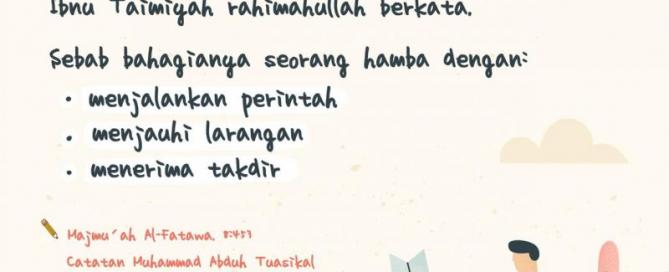 Ibnu Taimiyah rahimahullah berkata,
Sebab bahagianya seorang hamba dengan:
• menjalankan perintah
• menjauhi larangan
• menerima takdir
Majmu'ah Al-Fatawa, 8:453
Catatan Muhammad Abduh Tuasikal